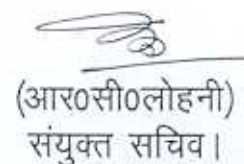 (आर0सी0लोहनी)
संयुक्त सचिव।